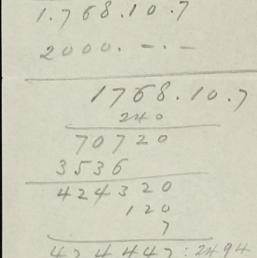 1.768.10.7
2000.—.—
1768.10.7
240
70720
3536
424320
120
7
424447:2494